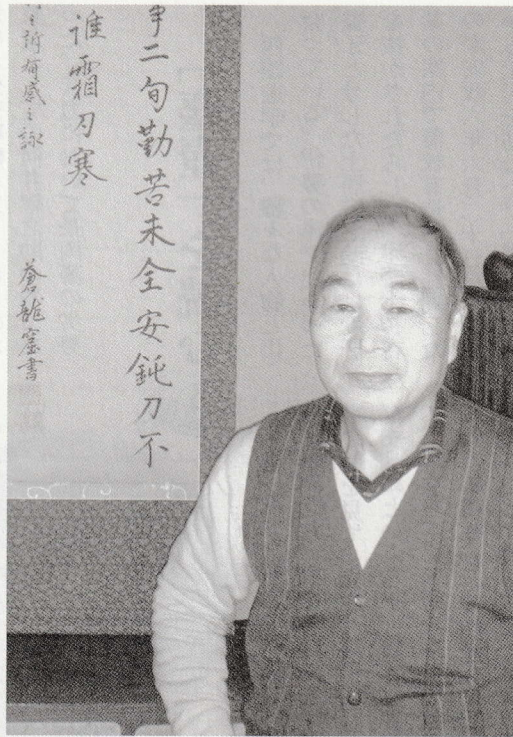 争二旬勤苦未全安鈍刀不
誰霜刃寒
之所有感之詠
蒼龍窟書